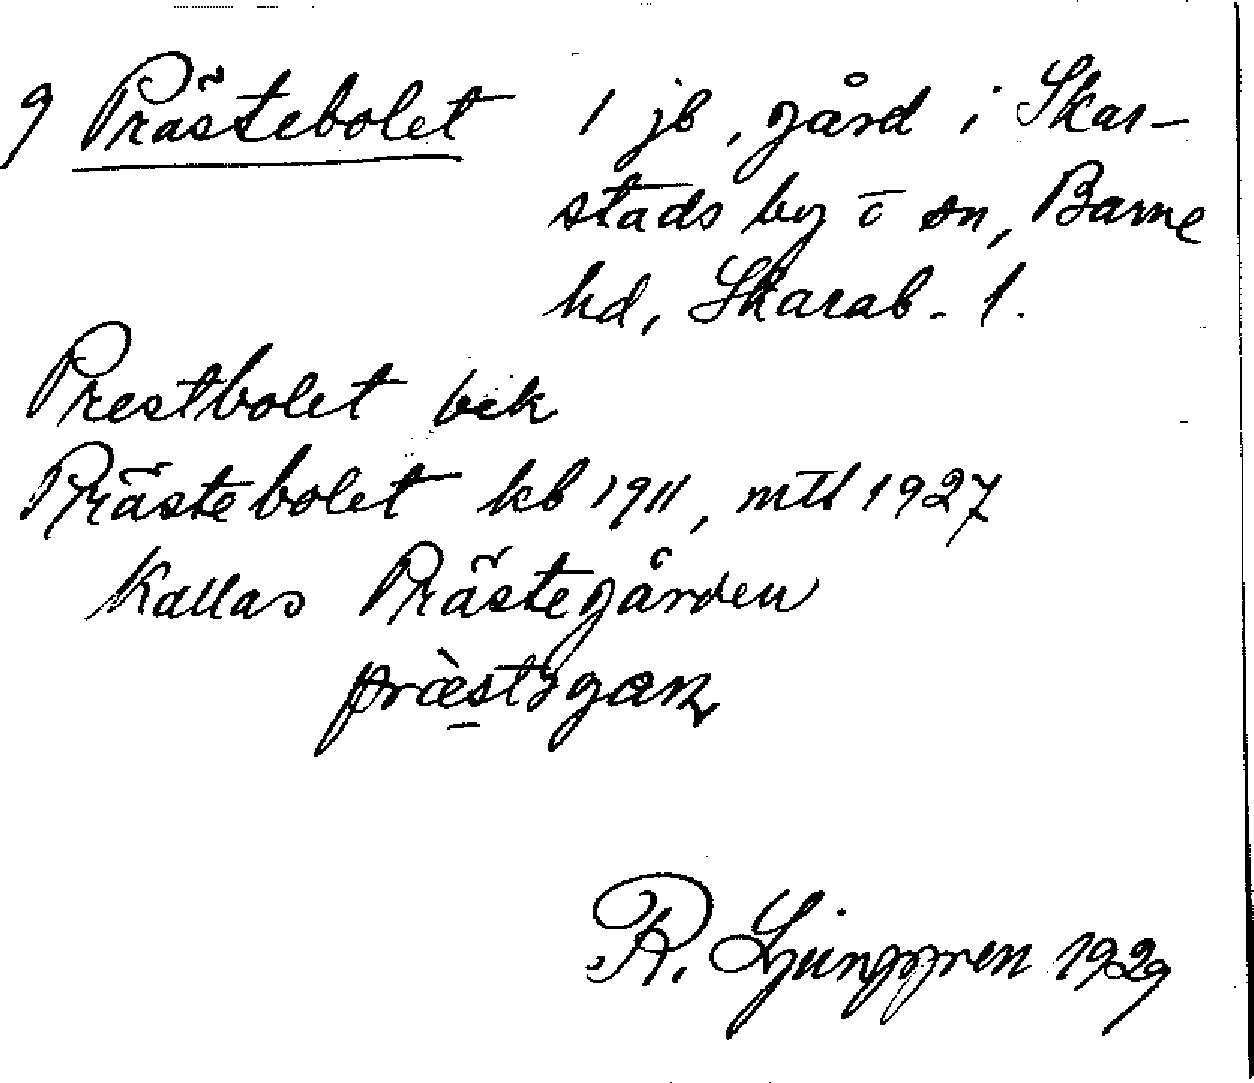 9 Prästebolet 1 jb, gård i Skar-
stads by o sn, Barne
hd, Skarab. l.
Prestbolet bek
Prästebolet kb 1911, mtl 1927
Kallas Prästegården
R. Ljunggren 1929